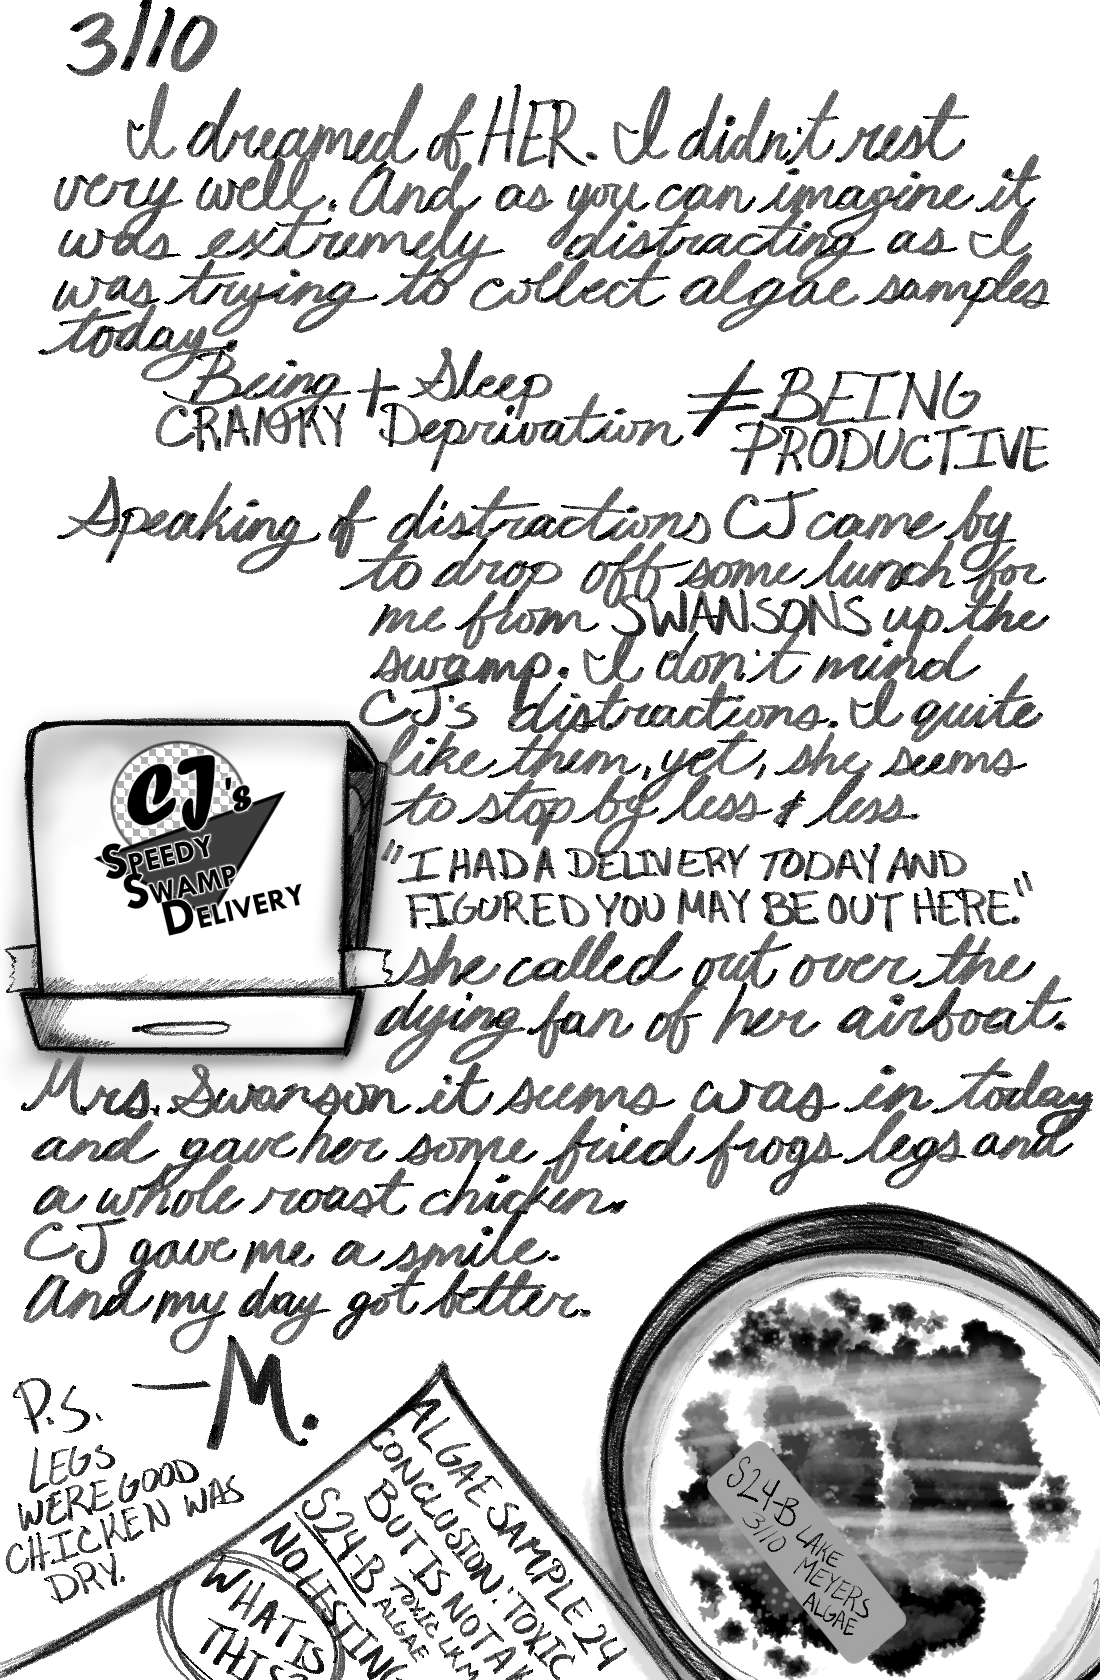 3/10
I dreamed of HER. I didn't rest
very well. And as you can imagine it
was extremely distracting as I
was trying to collect algae samples
today.
Being CRANKY + Sleep Deprivation ≠ BEING PRODUCTIVE
Speaking of distractions CJ came by
to drop off some lunch for
me from SWANSONS up the
swamp. I don't mind
CJ's distractions. I quite
like them, yet, she seems
to stop by less & less.
"I HAD A DELIVERY TODAY AND
FIGURED YOU MAY BE OUT HERE."
she called out over the
dying fan of her airboat.
CJ's
SPEEDY
SWAMP
DELIVERY
Mrs. Swanson it seems was in today
and gave her some fried frogs legs and
a whole roast chicken.
CJ gave me a smile.
And my day got better.
—M.
P.S.
LEGS
WERE GOOD
CHICKEN WAS
DRY.
ALGAE SAMPLE 24
CONCLUSION: TOXIC
BUT IS NOT A
S24-B TOXIC LKM
ALGAE
NO LISTING
WHAT IS
THIS?
S24-B LAKE
3/10 MEYERS
ALGAE